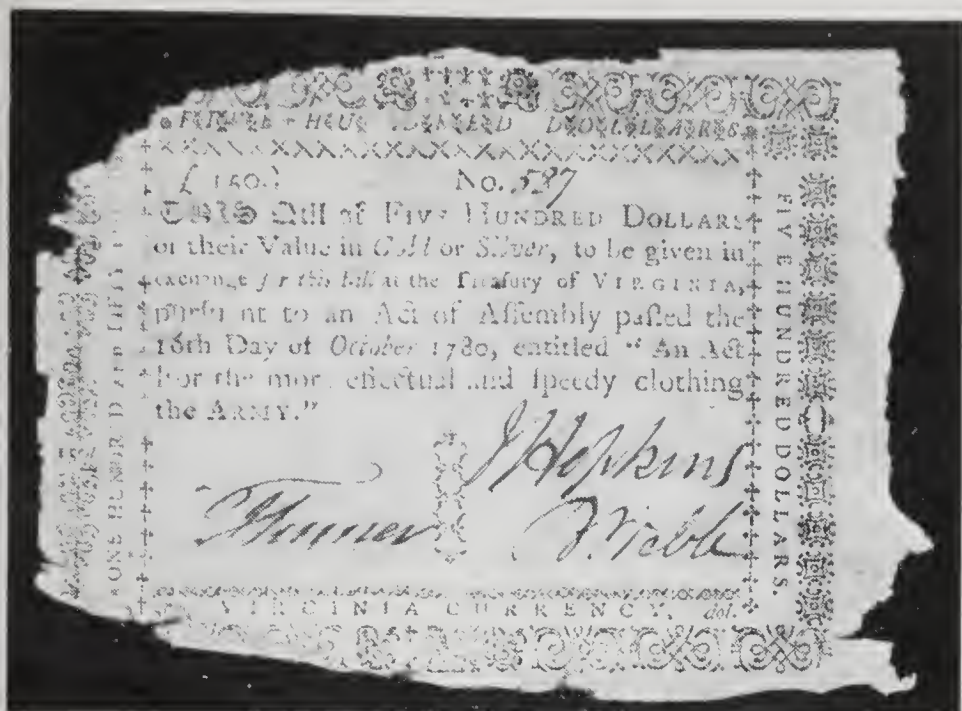 FIVE HUNDRED DOLLARS
£ 150. No. 587
THIS Bill of FIVE HUNDRED DOLLARS
or their Value in Gold or Silver, to be given in
exchange for this bill at the Treaſury of VIRGINIA,
purſuant to an Act of Aſſembly paſſed the
16th Day of October 1780, entitled "An Act
For the more effectual and ſpeedy clothing
the ARMY."
J Hopkins
Turner
J. Webb
VIRGINIA CURRENCY. dol.
ONE HUNDRED AND FIFTY
FIVE HUNDRED DOLLARS.